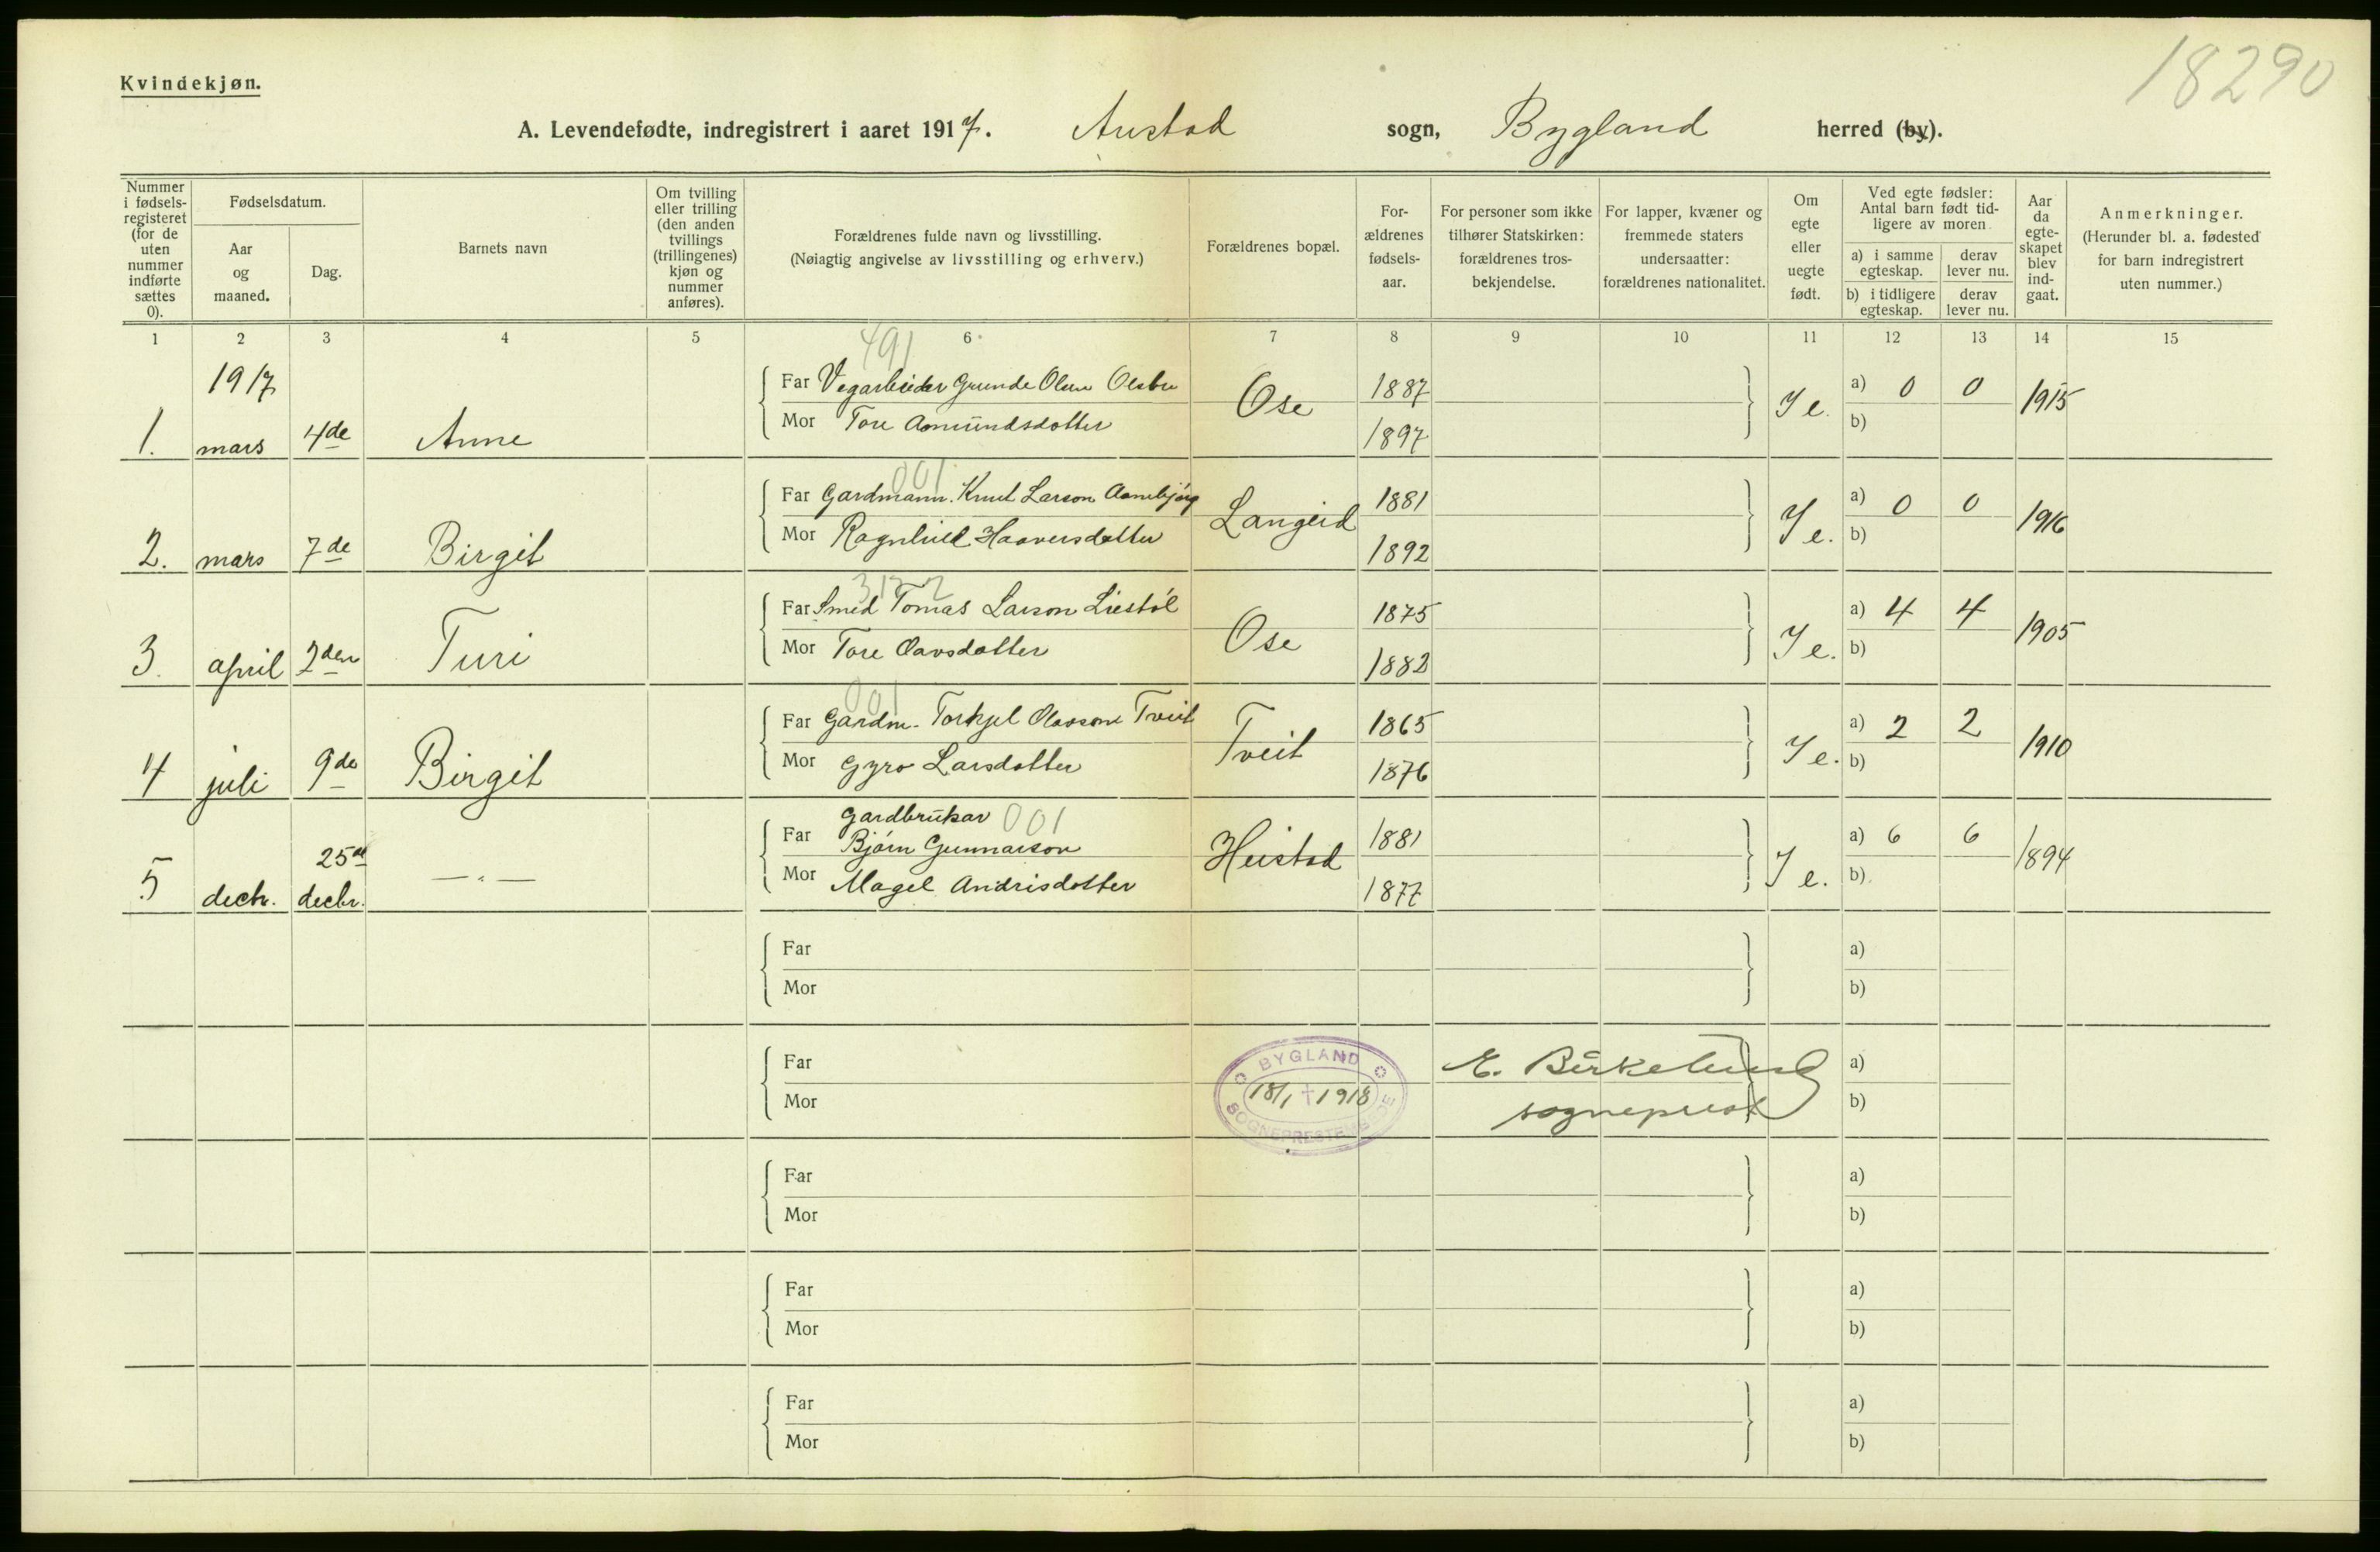 18290
Kvindekjøn.
A. Levendefødte, indregistrert i aaret 1917. Austad sogn, Bygland herred (by).
Nummer i fødsels-registeret (for de uten nummer indførte sættes 0).
Fødselsdatum.
Aar og maaned.
Dag.
Barnets navn
Om tvilling eller trilling (den anden tvillings (trillingenes) kjøn og nummer anføres).
Forældrenes fulde navn og livsstilling.
(Nøiagtig angivelse av livsstilling og erhverv.)
Forældrenes bopæl.
For-ældrenes fødsels-aar.
For personer som ikke tilhører Statskirken: forældrenes tros-bekjendelse.
For lapper, kvæner og fremmede staters undersaatter: forældrenes nationalitet.
Om egte eller uegte født.
Ved egte fødsler: Antal barn født tid-ligere av moren
a) i samme egteskap.
derav lever nu.
b) i tidligere egteskap.
derav lever nu.
Aar da egte-skapet blev ind-gaat.
Anmerkninger.
(Herunder bl. a. fødested for barn indregistrert uten nummer.)
1 2 3 4 5 6 7 8 9 10 11 12 13 14 15
491
1917
Far Vegarbeider Grunde Olsen 1887 a) 0 0
1. mars 4de Anne Ose Ie. 1915
Mor Tore Aamundsdotter 1897 b)
001
Far Gardmann. Knut Larson 1881 a) 0 0
2. mars 7de Birgit Langeid Ie. 1916
Mor Ragnhild Haaversdotter 1892 b)
Far Smed Tomas Larson Liestøl 1875 a) 4 4
3. april 2den Turi Ose Ie. 1905
Mor Tore Oavsdotter 1882 b)
001
Far Gardm. Torkjel Olavson Tveit 1865 a) 2 2
4 juli 9de Birgit Tveit Ie. 1910
Mor Gyro Larsdotter 1876 b)
Gardbrukar 001
Far Bjørn Gunnarson 1881 a) 6 6
5 decbr. 25de decbr. — " — Heistad Ie. 1894
Mor Magel Andrisdotter 1877 b)
Far a)
Mor b)
Far a)
Mor b)
BYGLAND
18/1 1918
SOGNEPRESTEMBEDE
E. Birkelund
sogneprest
Far a)
Mor b)
Far a)
Mor b)
Far a)
Mor b)